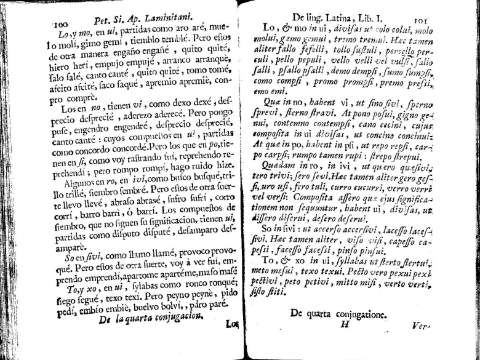 100 Pet. Si. Ap. Laminitani.
Lo, y mo, en ui, partidas como aro aré, mue-
lo molí, gimo gemi, tiemblo temblé. Pero estos
de otra manera engaño engañé, quito quité,
hiero heri, empujo empujé, arranco arranqué,
salo salé, canto canté, quito quité, tomo tomé,
afeito afeité, saco saqué, apremio apremié, com-
pro compré.
Los en no, tienen vi, como dexo dexé, des-
precio desprecié, aderezo aderecé. Pero pongo
puse, engendro engendré, desprecio desprecié,
canto canté: cuyos compuestos en ui, partidas
como concordo concordé. Pero los que en po, tie-
nen en si, como voy rastrando fui, reprehendo re-
prehendi; pero rompo rompi, hago ruido hize.
Algunos en ro, en ivi, como busco busqué, tri-
llo trillé, siembro sembré. Pero estos de otra suer-
te llevo llevé, abraso abrasé, sufro sufri, corro
corri, barro barri, ó barri. Los compuestos de
siembro, que no siguen su significacion, tienen ui,
partidas como disputo disputé, desamparo des-
amparé.
So en sivi, como llamo llamé, provoco provo-
qué. Pero estos de otra suerte, voy á ver fui, em-
prendo emprendi, apartome apartéme, maso masé
To, y xo, en ui, sylabas como ronco ronqué;
siego segué, texo texi. Pero peyno peyné, pido
pedi, embio embié, buelvo bolvi, paro paré.
De la quarta conjugacion.
Los
De ling. Latina, Lib. I. 101
Lo, & mo in ui, divisas ut colo colui, molo
molui, gemo gemui, tremo tremui. Hac tamen
aliter fallo fefelli, tollo sustuli, percello per-
culi, pello pepuli, vello velli vel vulsi, salio
salli, psallo psalli, demo dempsi, sumo sumpsi,
como compsi, promo prompsi, premo pressi,
emo emi.
Qua in no, habent vi, ut sino sivi, sperno
sprevi, sterno stravi. At pono posui, gigno ge-
nui, contemno contempsi, cano cecini, cujus
composita in ui divisas, ut concino concinui:
At qua in po, habent in psi, ut repo repsi, car-
po carpsi; rumpo tamen rupi: strepo strepui.
Quadam in ro, in ivi, ut quaro quasivi,
tero trivi; sero sevi. Hac tamen aliter gero ges-
si, uro usi, fero tuli, curro cucurri, verro verri
vel versi: Composita assero qua ejus significa-
tionem non sequuntur, habent ui, divisas, ut
dissero diserui, desero deserui.
So in sivi: ut accerso accersivi, lacesso laces-
sivi. Hac tamen aliter, viso visi, capesso ca-
pessi, facesso facessi, pinso pinsui.
To, & xo in ui, syllabas ut sterto stertui,
meto messui, texo texui. Pecto vero pexui pexi
pectivi, peto petivi, mitto misi, verto verti,
sisto stiti.
De quarta conjugatione.
H Ver-